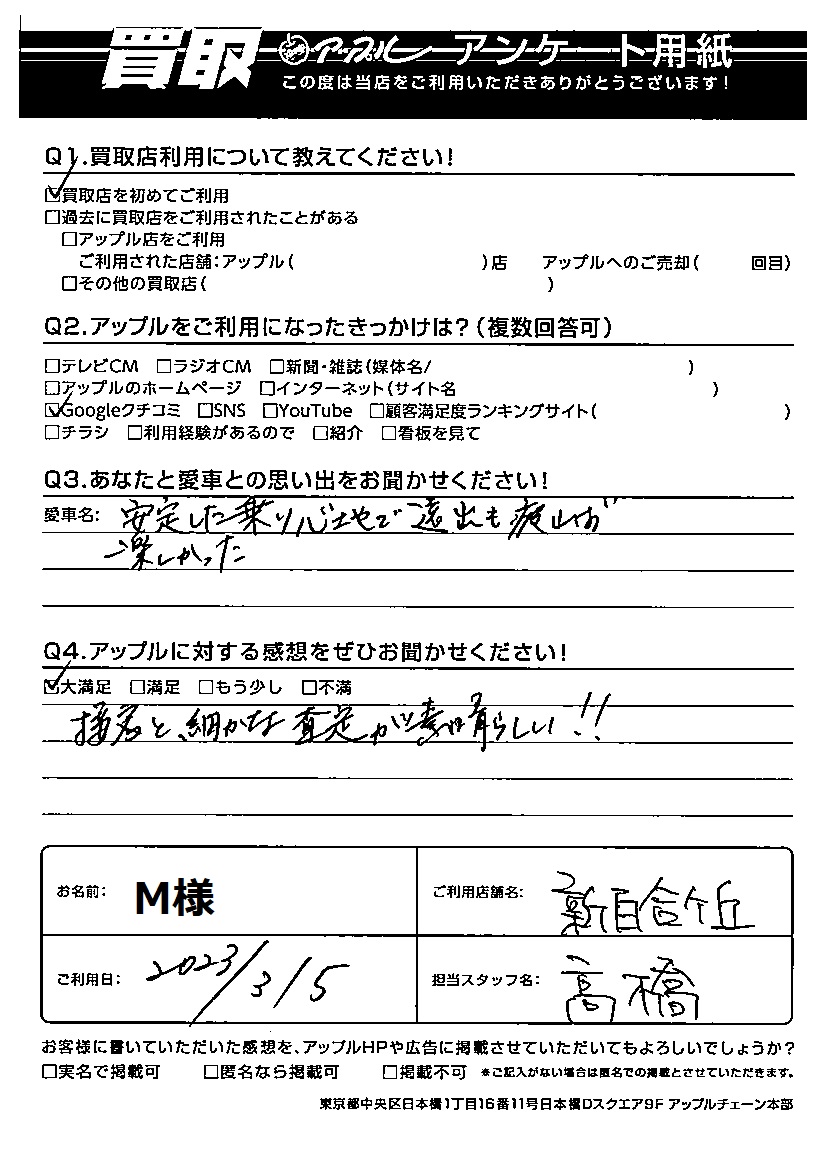 買取 アップル アンケート用紙
この度は当店をご利用いただきありがとうございます!
Q1.買取店利用について教えてください!
☑買取店を初めてご利用
□過去に買取店をご利用されたことがある
□アップル店をご利用
ご利用された店舗:アップル( )店 アップルへのご売却( 回目)
□その他の買取店( )
Q2.アップルをご利用になったきっかけは?(複数回答可)
□テレビCM □ラジオCM □新聞・雑誌(媒体名/ )
□アップルのホームページ □インターネット(サイト名 )
☑Googleクチコミ □SNS □YouTube □顧客満足度ランキングサイト( )
□チラシ □利用経験があるので □紹介 □看板を見て
Q3.あなたと愛車との思い出をお聞かせください!
愛車名: 安定した乗り心地で遠出も疲れず
楽しかった
Q4.アップルに対する感想をぜひお聞かせください!
☑大満足 □満足 □もう少し □不満
接客と、細かな査定が素晴らしい!!
お名前: M様 ご利用店舗名: 新百合ヶ丘
ご利用日: 2023/3/5 担当スタッフ名: 高橋
お客様に書いていただいた感想を、アップルHPや広告に掲載させていただいてもよろしいでしょうか?
□実名で掲載可 □匿名なら掲載可 □掲載不可 *ご記入がない場合は匿名での掲載とさせていただきます。
東京都中央区日本橋1丁目16番11号日本橋Dスクエア9F アップルチェーン本部